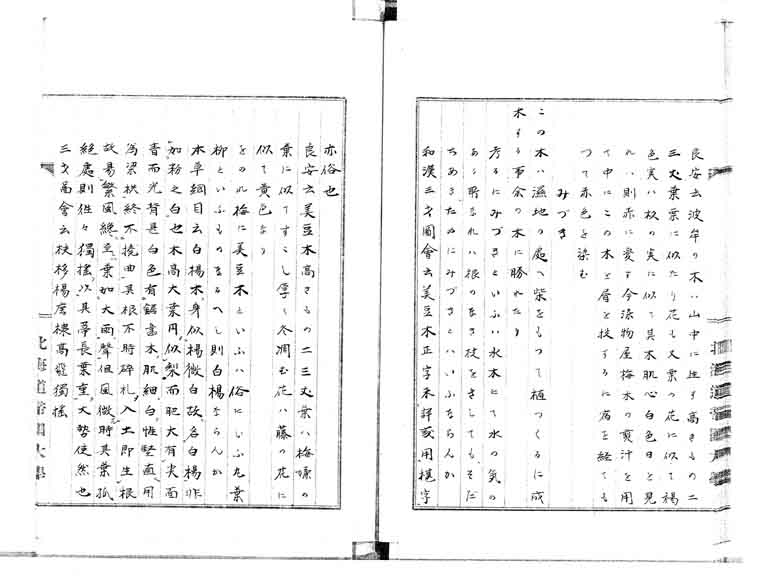 良安云波牟の木ハ山中に生す高きもの二
三丈葉栗に似たり花も又栗の花に似て褐
色実ハ杉の実に似て其木肌心白色日を見
れハ則赤に変す今染物屋梅木の煎汁を用
て中にこの木を屑を投するに宿を経ても
つて赤色を染む
みづき
この木ハ濕地の處へ柴をもつて植つくるに成
木する事余の木に勝れたり
考るにみづきといふハ水木にて水の気の
ある所なれハ根のなき枝をさしても
ちあきたゆにみづきとハいふならんか
和漢三才圖會云美豆木正字未詳或用
字
亦俗也
良安云美豆木高きもの二三丈葉ハ梅嫌の
葉に似てすこし厚く冬凋む花ハ藤の花に
似て黄色なり
をのれ梅に美豆木といふハ俗にいふ丸葉
柳といふものなるへし則白楊ならんか
本草綱目云白楊木身似楊微白故名白楊非
如粉之白也木高大葉円似梨而肥大有尖面
青而光背甚白色有鋸歯木肌細白性堅直用
為梁栱終不撓曲其根不時砕札入土即生根
故易繁風纔至葉如大雨聲但風微時其葉孤
絶處則往々獨搖以其蒂長葉重大勢使然也
三才圖會云扶栘楊
高飛獨搖
北海道帝國大學